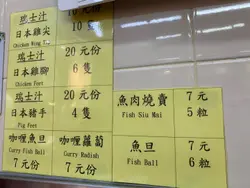 瑞士汁
日本雞尖
Chicken Wing Tip
10隻
瑞士汁
日本雞腳
Chicken Feet
20元份
6隻
瑞士汁
日本豬手
Pig Feet
20元份
4隻
魚肉燒賣
Fish Siu Mai
7元
5粒
咖喱魚旦
Curry Fish Ball
7元份
咖喱蘿蔔
Curry Radish
7元份
魚旦
Fish Ball
7元
6粒